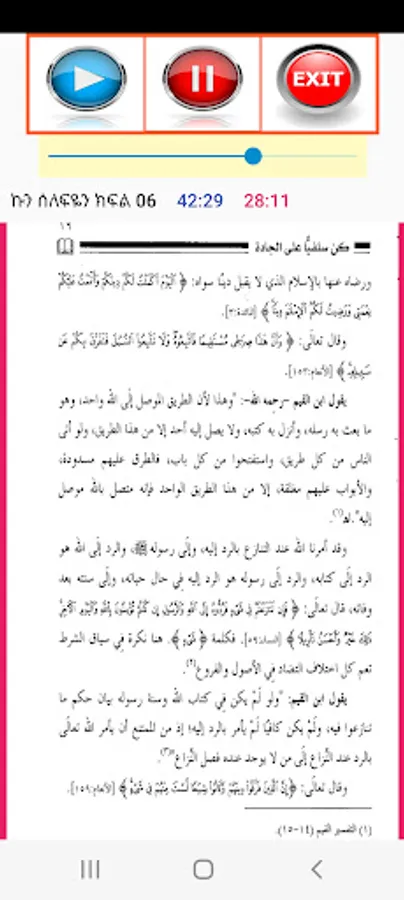 EXIT
ኩን ሰለፍዬን ክፍል 06 42:29 28:11
١٦
كن سلفيًّا على الجادة
ورضاه عنها بالإسلام الذي لا يقبل دينًا سواه: ﴿ٱلْيَوْمَ أَكْمَلْتُ لَكُمْ دِينَكُمْ وَأَتْمَمْتُ عَلَيْكُمْ
نِعْمَتِي وَرَضِيتُ لَكُمُ ٱلْإِسْلَٰمَ دِينًا﴾ [المائدة:٣].
وقال تعالَى: ﴿وَأَنَّ هَٰذَا صِرَٰطِي مُسْتَقِيمًا فَٱتَّبِعُوهُ وَلَا تَتَّبِعُوا۟ ٱلسُّبُلَ فَتَفَرَّقَ بِكُمْ عَن
سَبِيلِهِۦ﴾ [الأنعام:١٥٣].
يقول ابن القيم -رحِمه الله-: "وهذا لأن الطريق الْمُوصل إلَى الله واحد، وهو
ما بعث به رسله، وأنزل به كتبه، ولا يصل إليه أحد إلا من هذا الطريق، ولو أتى
الناس من كل طريق، واستفتحوا من كل باب، فالطرق عليهم مسدودة،
والأبواب عليهم مغلقة، إلا من هذا الطريق الواحد فإنه متصل بالله موصل
إليه".اهـ(١).
وقد أمرنا الله عند التنازع بالرد إليه، وإلَى رسوله ﷺ، والرد إلَى الله هو
الرد إلَى كتابه، والرد إلَى رسوله هو الرد إليه في حال حياته، وإلَى سنته بعد
وفاته، قال تعالَى: ﴿فَإِن تَنَٰزَعْتُمْ فِي شَيْءٍ فَرُدُّوهُ إِلَى ٱللَّهِ وَٱلرَّسُولِ إِن كُنتُمْ تُؤْمِنُونَ بِٱللَّهِ وَٱلْيَوْمِ ٱلْءَاخِرِ
ذَٰلِكَ خَيْرٌ وَأَحْسَنُ تَأْوِيلًا﴾ [النساء:٥٩]. فكلمة ﴿شَيْءٍ﴾. هنا نكرة في سياق الشرط
تعم كل اختلاف التضاد في الأصول والفروع(٢).
يقول ابن القيم: "ولو لَمْ يكن في كتاب الله وسنة رسوله بيان حكم ما
تنازعوا فيه، ولَمْ يكن كافيًا لَمْ يأمر بالرد إليه؛ إذ من الممتنع أن يأمر الله تعالَى
بالرد عند النّزاع إلَى من لا يوجد عنده فصل النّزاع"(٣).
وقال تعالَى: ﴿إِنَّ ٱلَّذِينَ فَرَّقُوا۟ دِينَهُمْ وَكَانُوا۟ شِيَعًا لَّسْتَ مِنْهُمْ فِي شَيْءٍ﴾ [الأنعام:١٥٩].
(١) التفسير القيم (١٤-١٥).